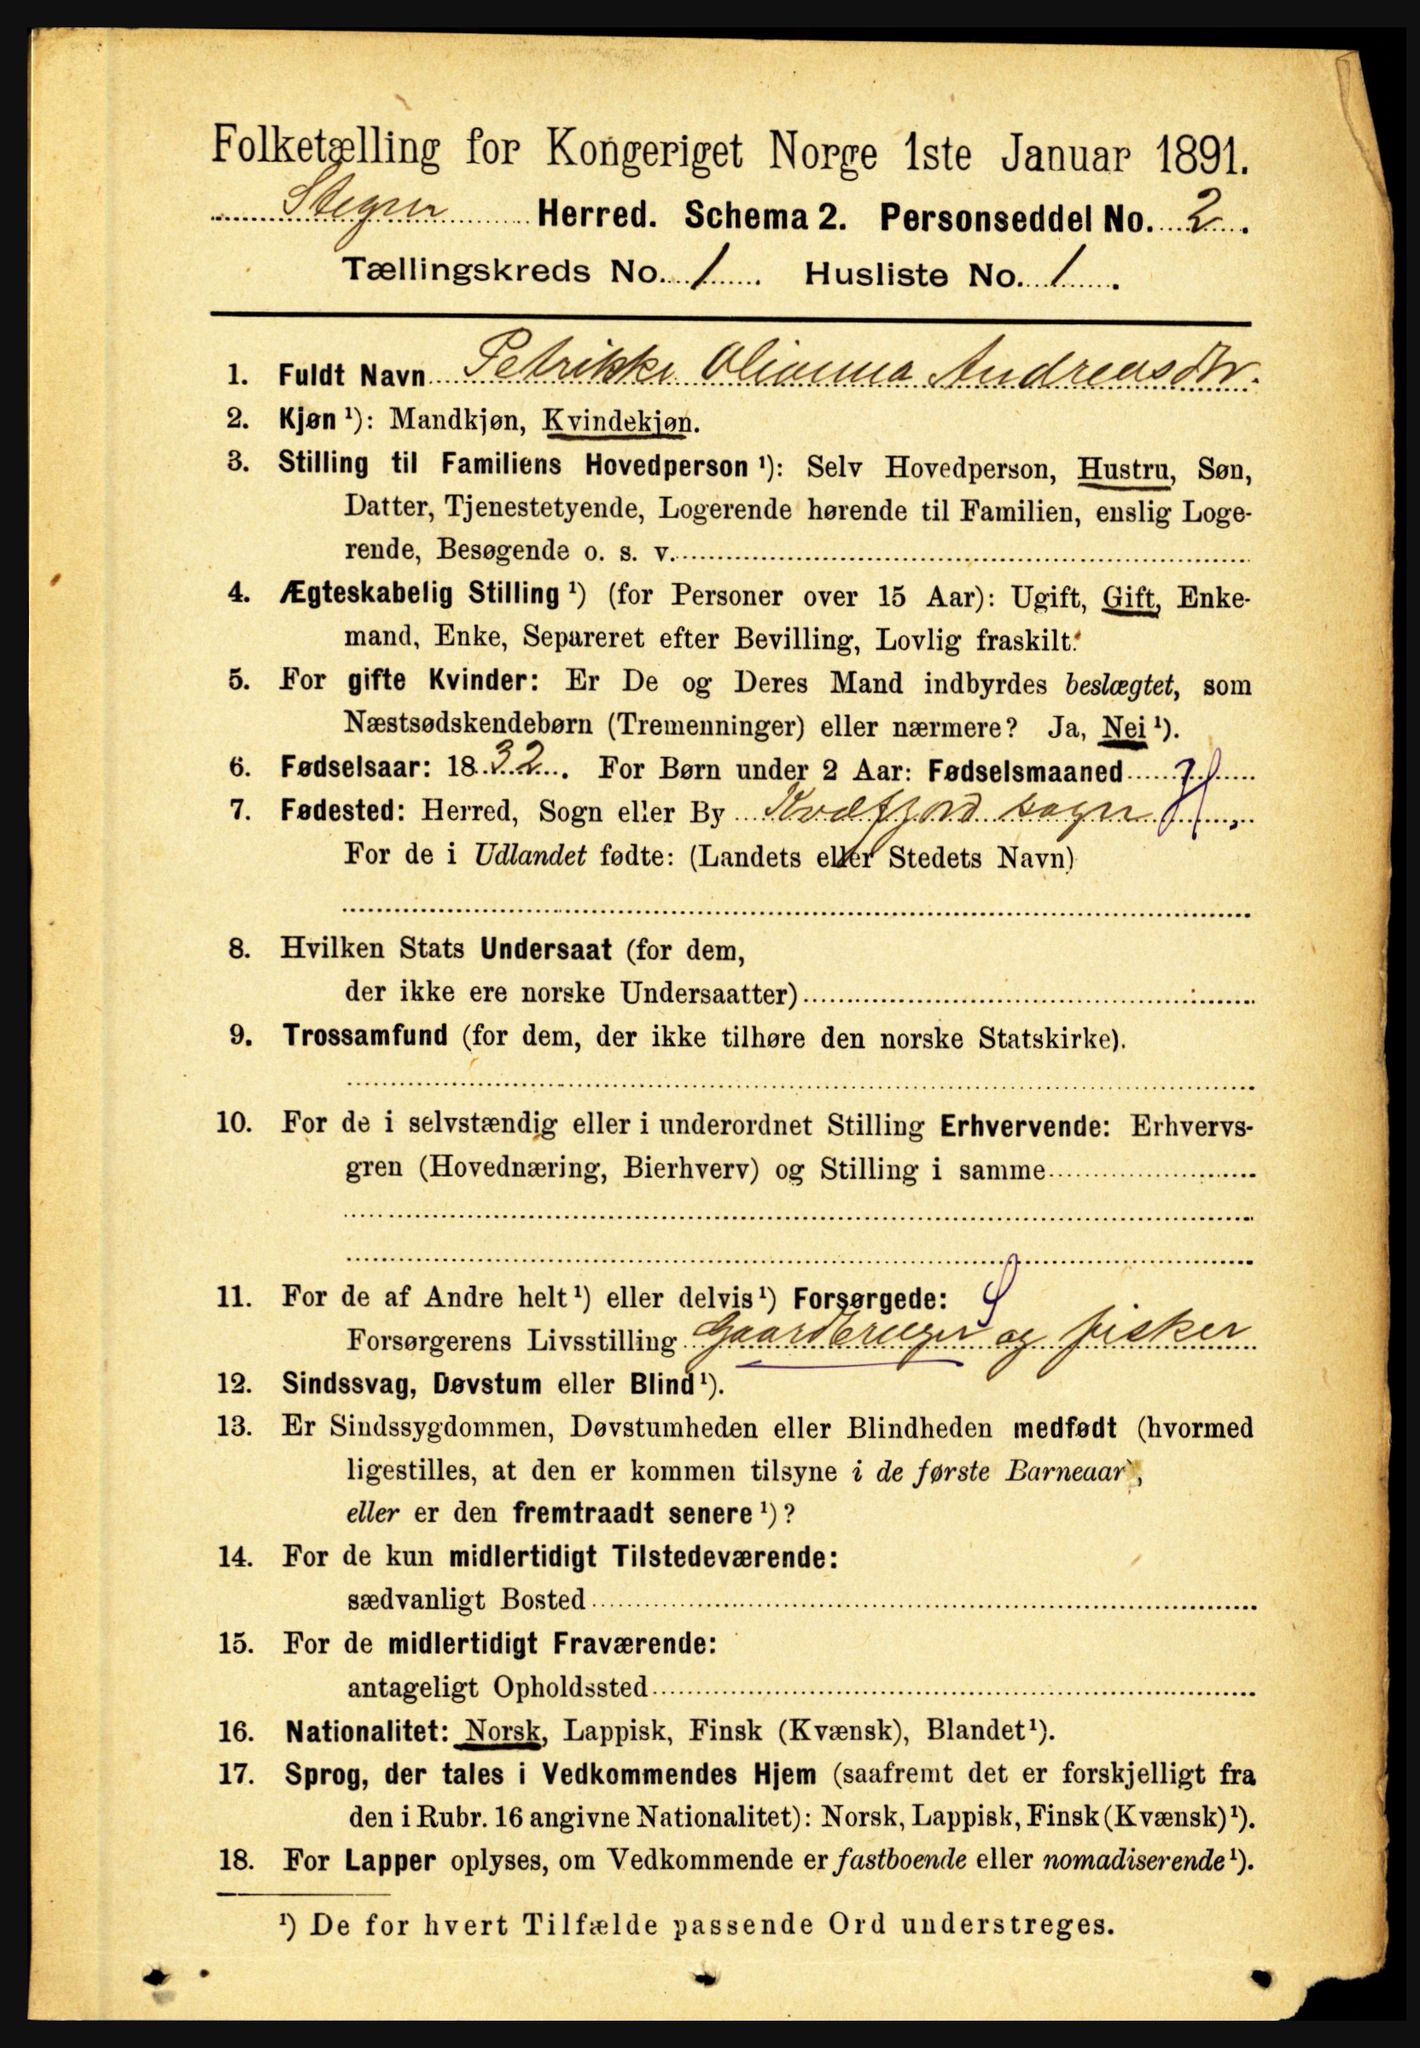 Folketælling for Kongeriget Norge 1ste Januar 1891.
Stegen Herred. Schema 2. Personseddel No. 2.
Tællingskreds No. 1. Husliste No. 1.
1. Fuldt Navn Petrikke Olianna Andreasdtr.
2. Kjøn ¹): Mandkjøn, Kvindekjøn.
3. Stilling til Familiens Hovedperson ¹): Selv Hovedperson, Hustru, Søn,
Datter, Tjenestetyende, Logerende hørende til Familien, enslig Loge-
rende, Besøgende o. s. v.
4. Ægteskabelig Stilling ¹) (for Personer over 15 Aar): Ugift, Gift, Enke-
mand, Enke, Separeret efter Bevilling, Lovlig fraskilt.
5. For gifte Kvinder: Er De og Deres Mand indbyrdes beslægtet, som
Næstsødskendebørn (Tremenninger) eller nærmere? Ja, Nei ¹).
6. Fødselsaar: 1832. For Børn under 2 Aar: Fødselsmaaned
7. Fødested: Herred, Sogn eller By Kvæfjord sogn
For de i Udlandet fødte: (Landets eller Stedets Navn)
8. Hvilken Stats Undersaat (for dem,
der ikke ere norske Undersaatter)
9. Trossamfund (for dem, der ikke tilhøre den norske Statskirke).
10. For de i selvstændig eller i underordnet Stilling Erhvervende: Erhvervs-
gren (Hovednæring, Bierhverv) og Stilling i samme
11. For de af Andre helt ¹) eller delvis ¹) Forsørgede:
Forsørgerens Livsstilling Gaardbruger og fisker
12. Sindssvag, Døvstum eller Blind ¹).
13. Er Sindssygdommen, Døvstumheden eller Blindheden medfødt (hvormed
ligestilles, at den er kommen tilsyne i de første Barneaar),
eller er den fremtraadt senere ¹)?
14. For de kun midlertidigt Tilstedeværende:
sædvanligt Bosted
15. For de midlertidigt Fraværende:
antageligt Opholdssted
16. Nationalitet: Norsk, Lappisk, Finsk (Kvænsk), Blandet ¹).
17. Sprog, der tales i Vedkommendes Hjem (saafremt det er forskjelligt fra
den i Rubr. 16 angivne Nationalitet): Norsk, Lappisk, Finsk (Kvænsk) ¹).
18. For Lapper oplyses, om Vedkommende er fastboende eller nomadiserende ¹).
¹) De for hvert Tilfælde passende Ord understreges.